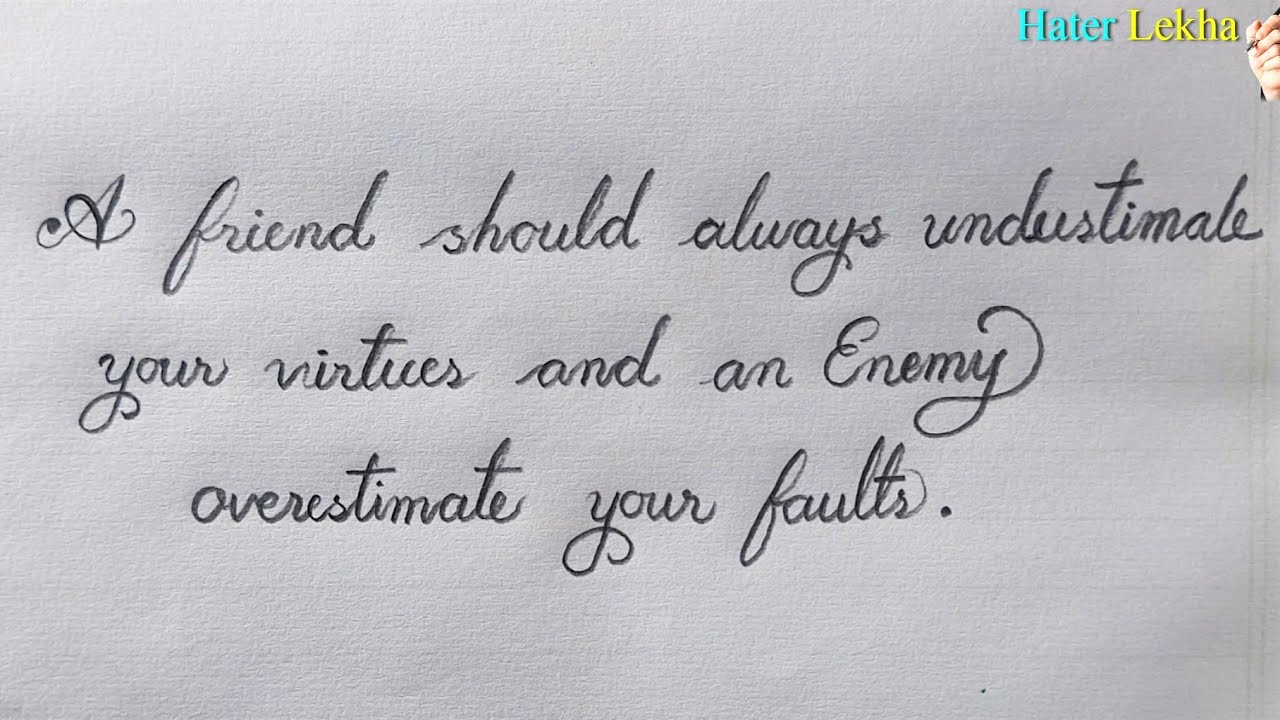 Hater Lekha
A friend should always understimate
your virtues and an Enemy
overestimate your faults.